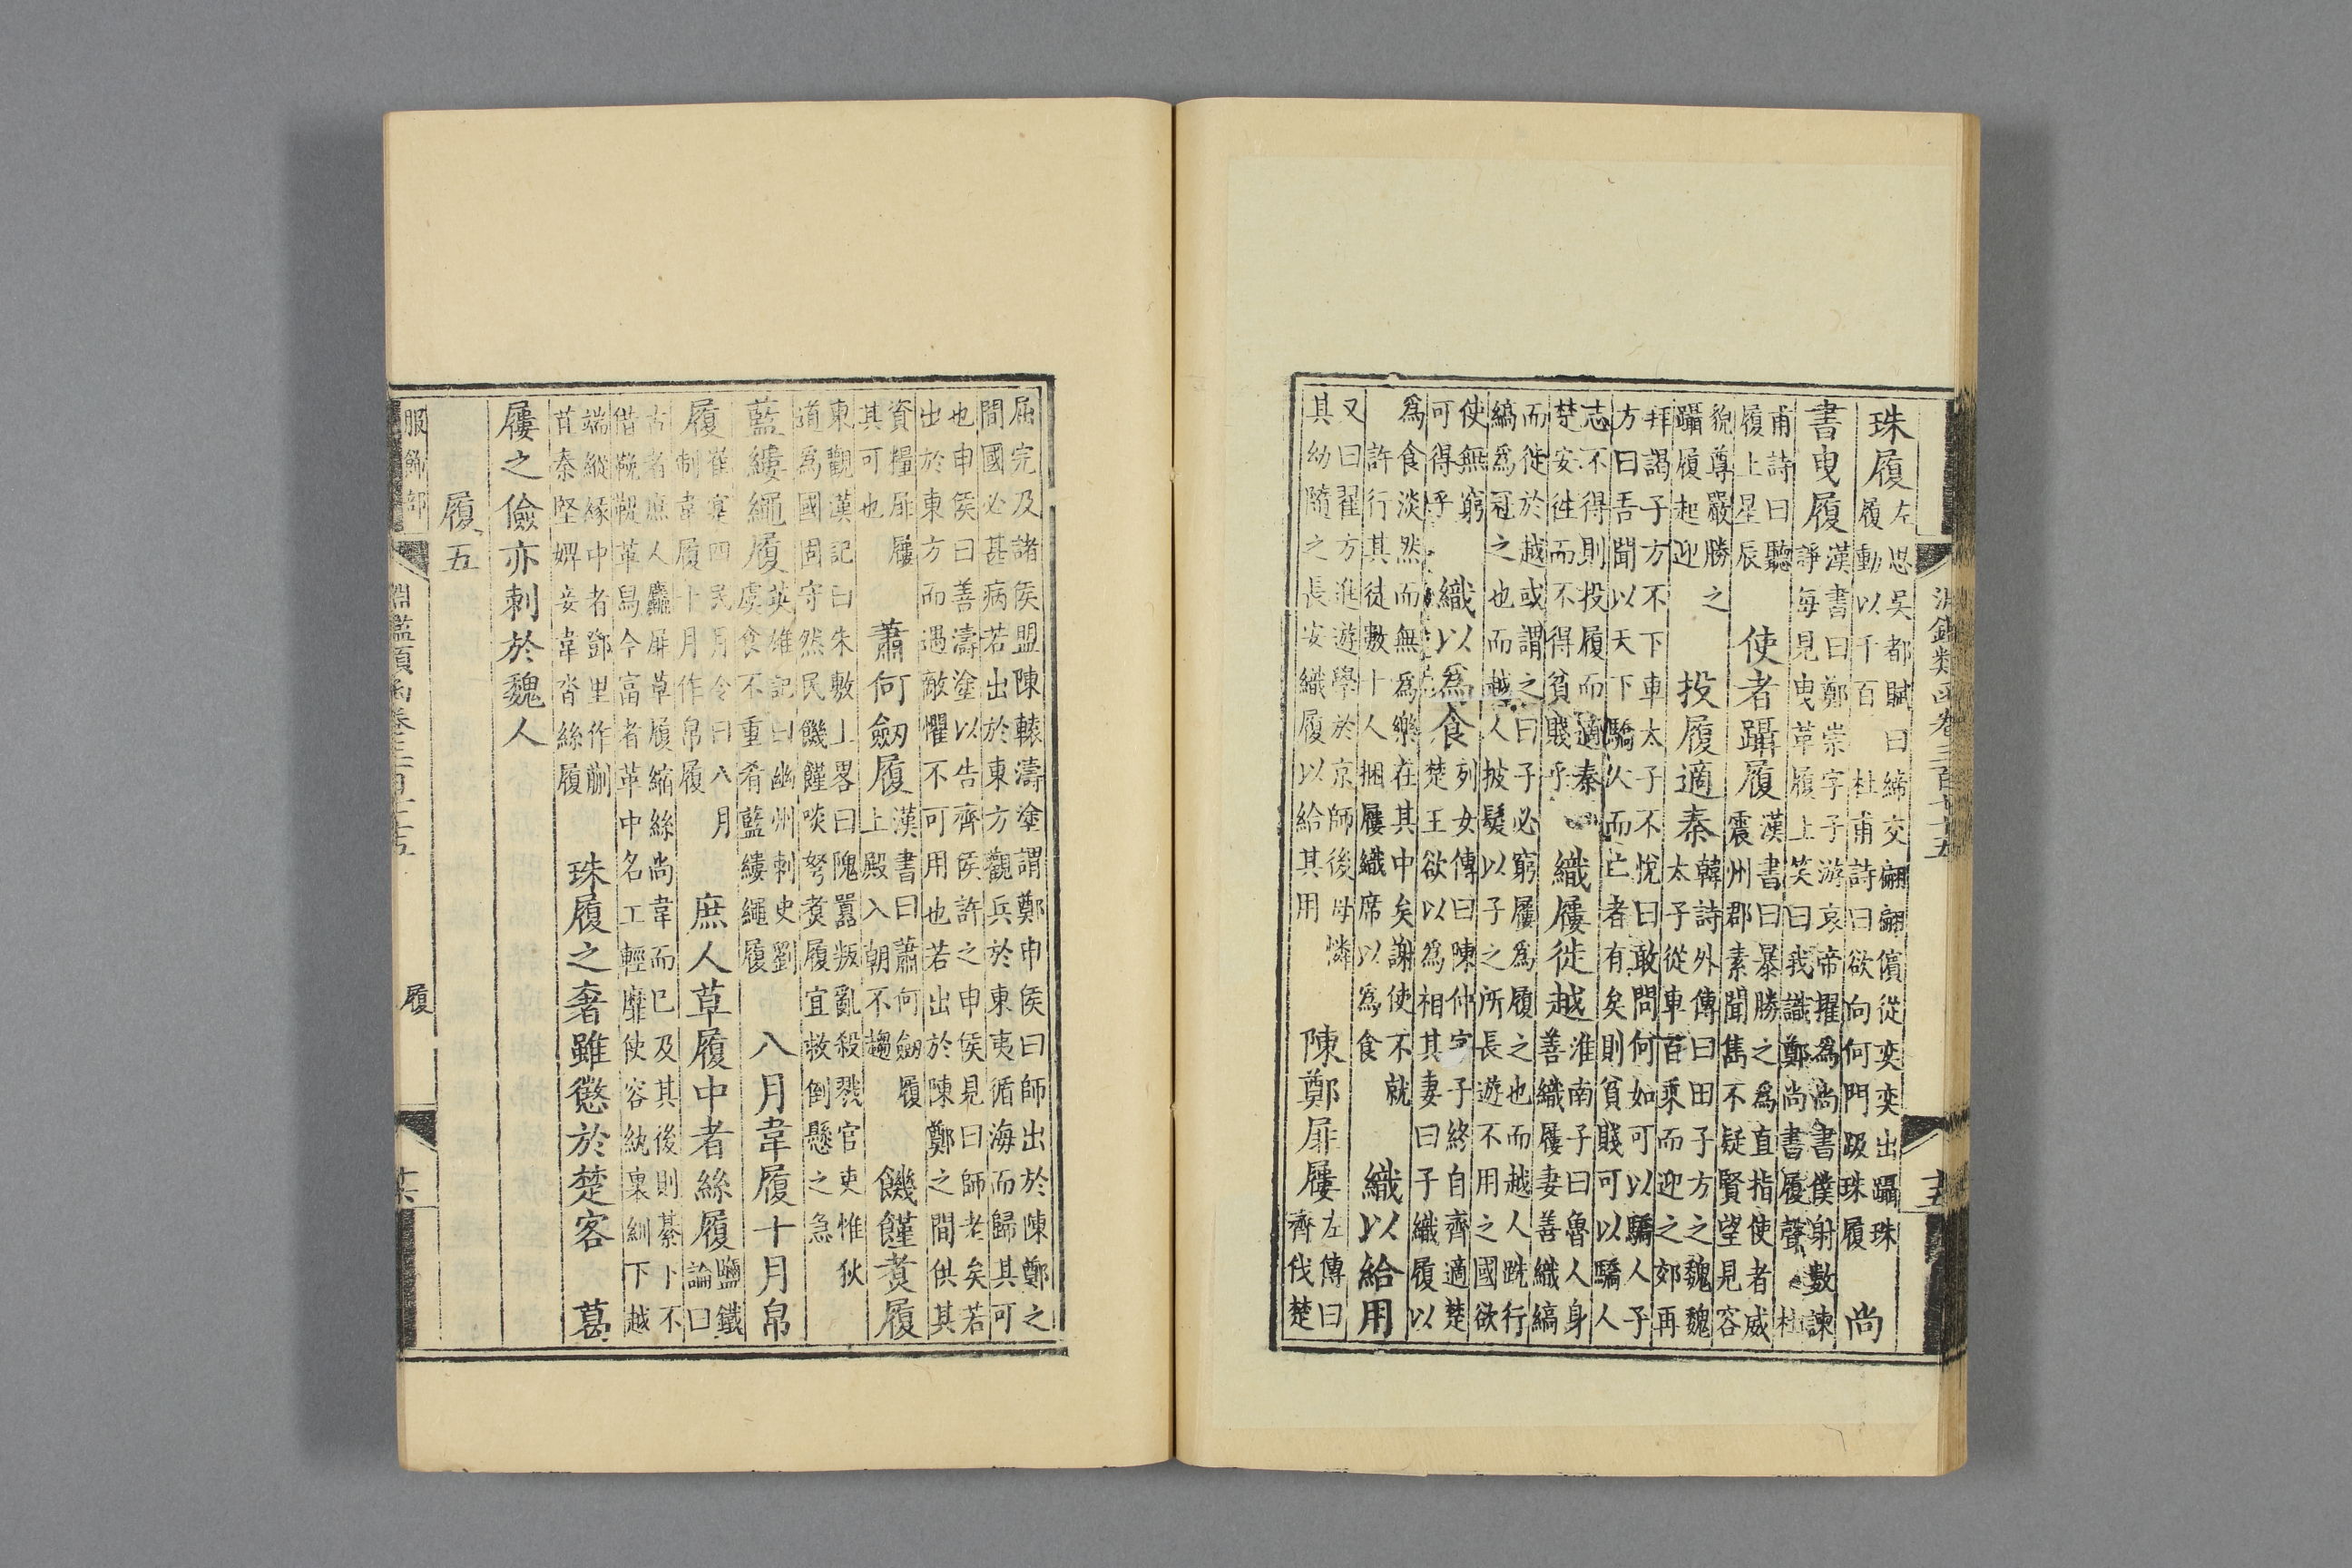 淵鑑類函卷三百七十五
十五
珠履左思吳都賦曰締交翩翩儐從奕奕出躡珠
履動以千百　杜甫詩曰欲向何門趿珠履　尚
書曳履漢書曰鄭崇字子游哀帝擢為尚書僕射數諫
諍每見曳革履上笑曰我識鄭尚書履聲　杜
甫詩曰聽
履上星辰　使者躡履漢書曰暴勝之為直指使者威
震州郡素聞雋不疑賢望見容
貌尊嚴勝之
躡履起迎　投履適秦韓詩外傳曰田子方之魏魏
太子從車百乘而迎之郊再
拜謁子方不下車太子不悅曰敢問何如可以驕人子
方曰吾聞以天下驕人而亡者有矣則貧賤可以驕人
志不得則投履而適秦
楚安往而不得貧賤乎　織屨徙越淮南子曰魯人身
善織屨妻善織縞
而徙於越或謂之曰子必窮屨為履之也而越人跣行
縞為冠之也而越人披髮以子之所長遊不用之國欲
使無窮
可得乎　織以為食列女傳曰陳仲字子終自齊適楚
楚王欲以為相其妻曰子織履以
為食淡然而無為樂在其中矣謝使不就
許行其徒數十人捆屨織席以為食　織以給用
又曰翟方進遊學於京師後母憐
其幼隨之長安織履以給其用　陳鄭屝屨左傳曰
齊伐楚
屈完及諸侯盟陳轅濤塗謂鄭申侯曰師出於陳鄭之
間國必甚病若出於東方觀兵於東夷循海而歸其可
也申侯曰善濤塗以告齊侯許之申侯見曰師老矣若
出於東方而遇敵懼不可用也若出於陳鄭之間供其
資糧屝屨
其可也　蕭何劒履漢書曰蕭何劒履
上殿入朝不趨　饑饉煑履
東觀漢記曰朱敷上畧曰隗囂叛亂殺戮官吏惟狄
道為國固守然民饑饉啖弩煑履宜救倒懸之急
藍縷繩履英雄記曰幽州刺史劉
虞食不重肴藍縷繩履　八月韋履十月帛
履崔寔四民月令曰八月
制韋履十月作帛履　庶人草履中者絲履鹽鐵
論曰
古者庶人麤屝草履縮絲尚韋而已及其後則綦下不
借鞔鞮革舄今富者革中名工輕靡使容紈裏紃下越
端縱緣中者鄧里作蒯
苴秦堅婢妾韋沓絲履　珠履之奢雖懲於楚客　葛
屨之儉亦刺於魏人
履五
服飾部
淵鑑類函卷三百七十五
履